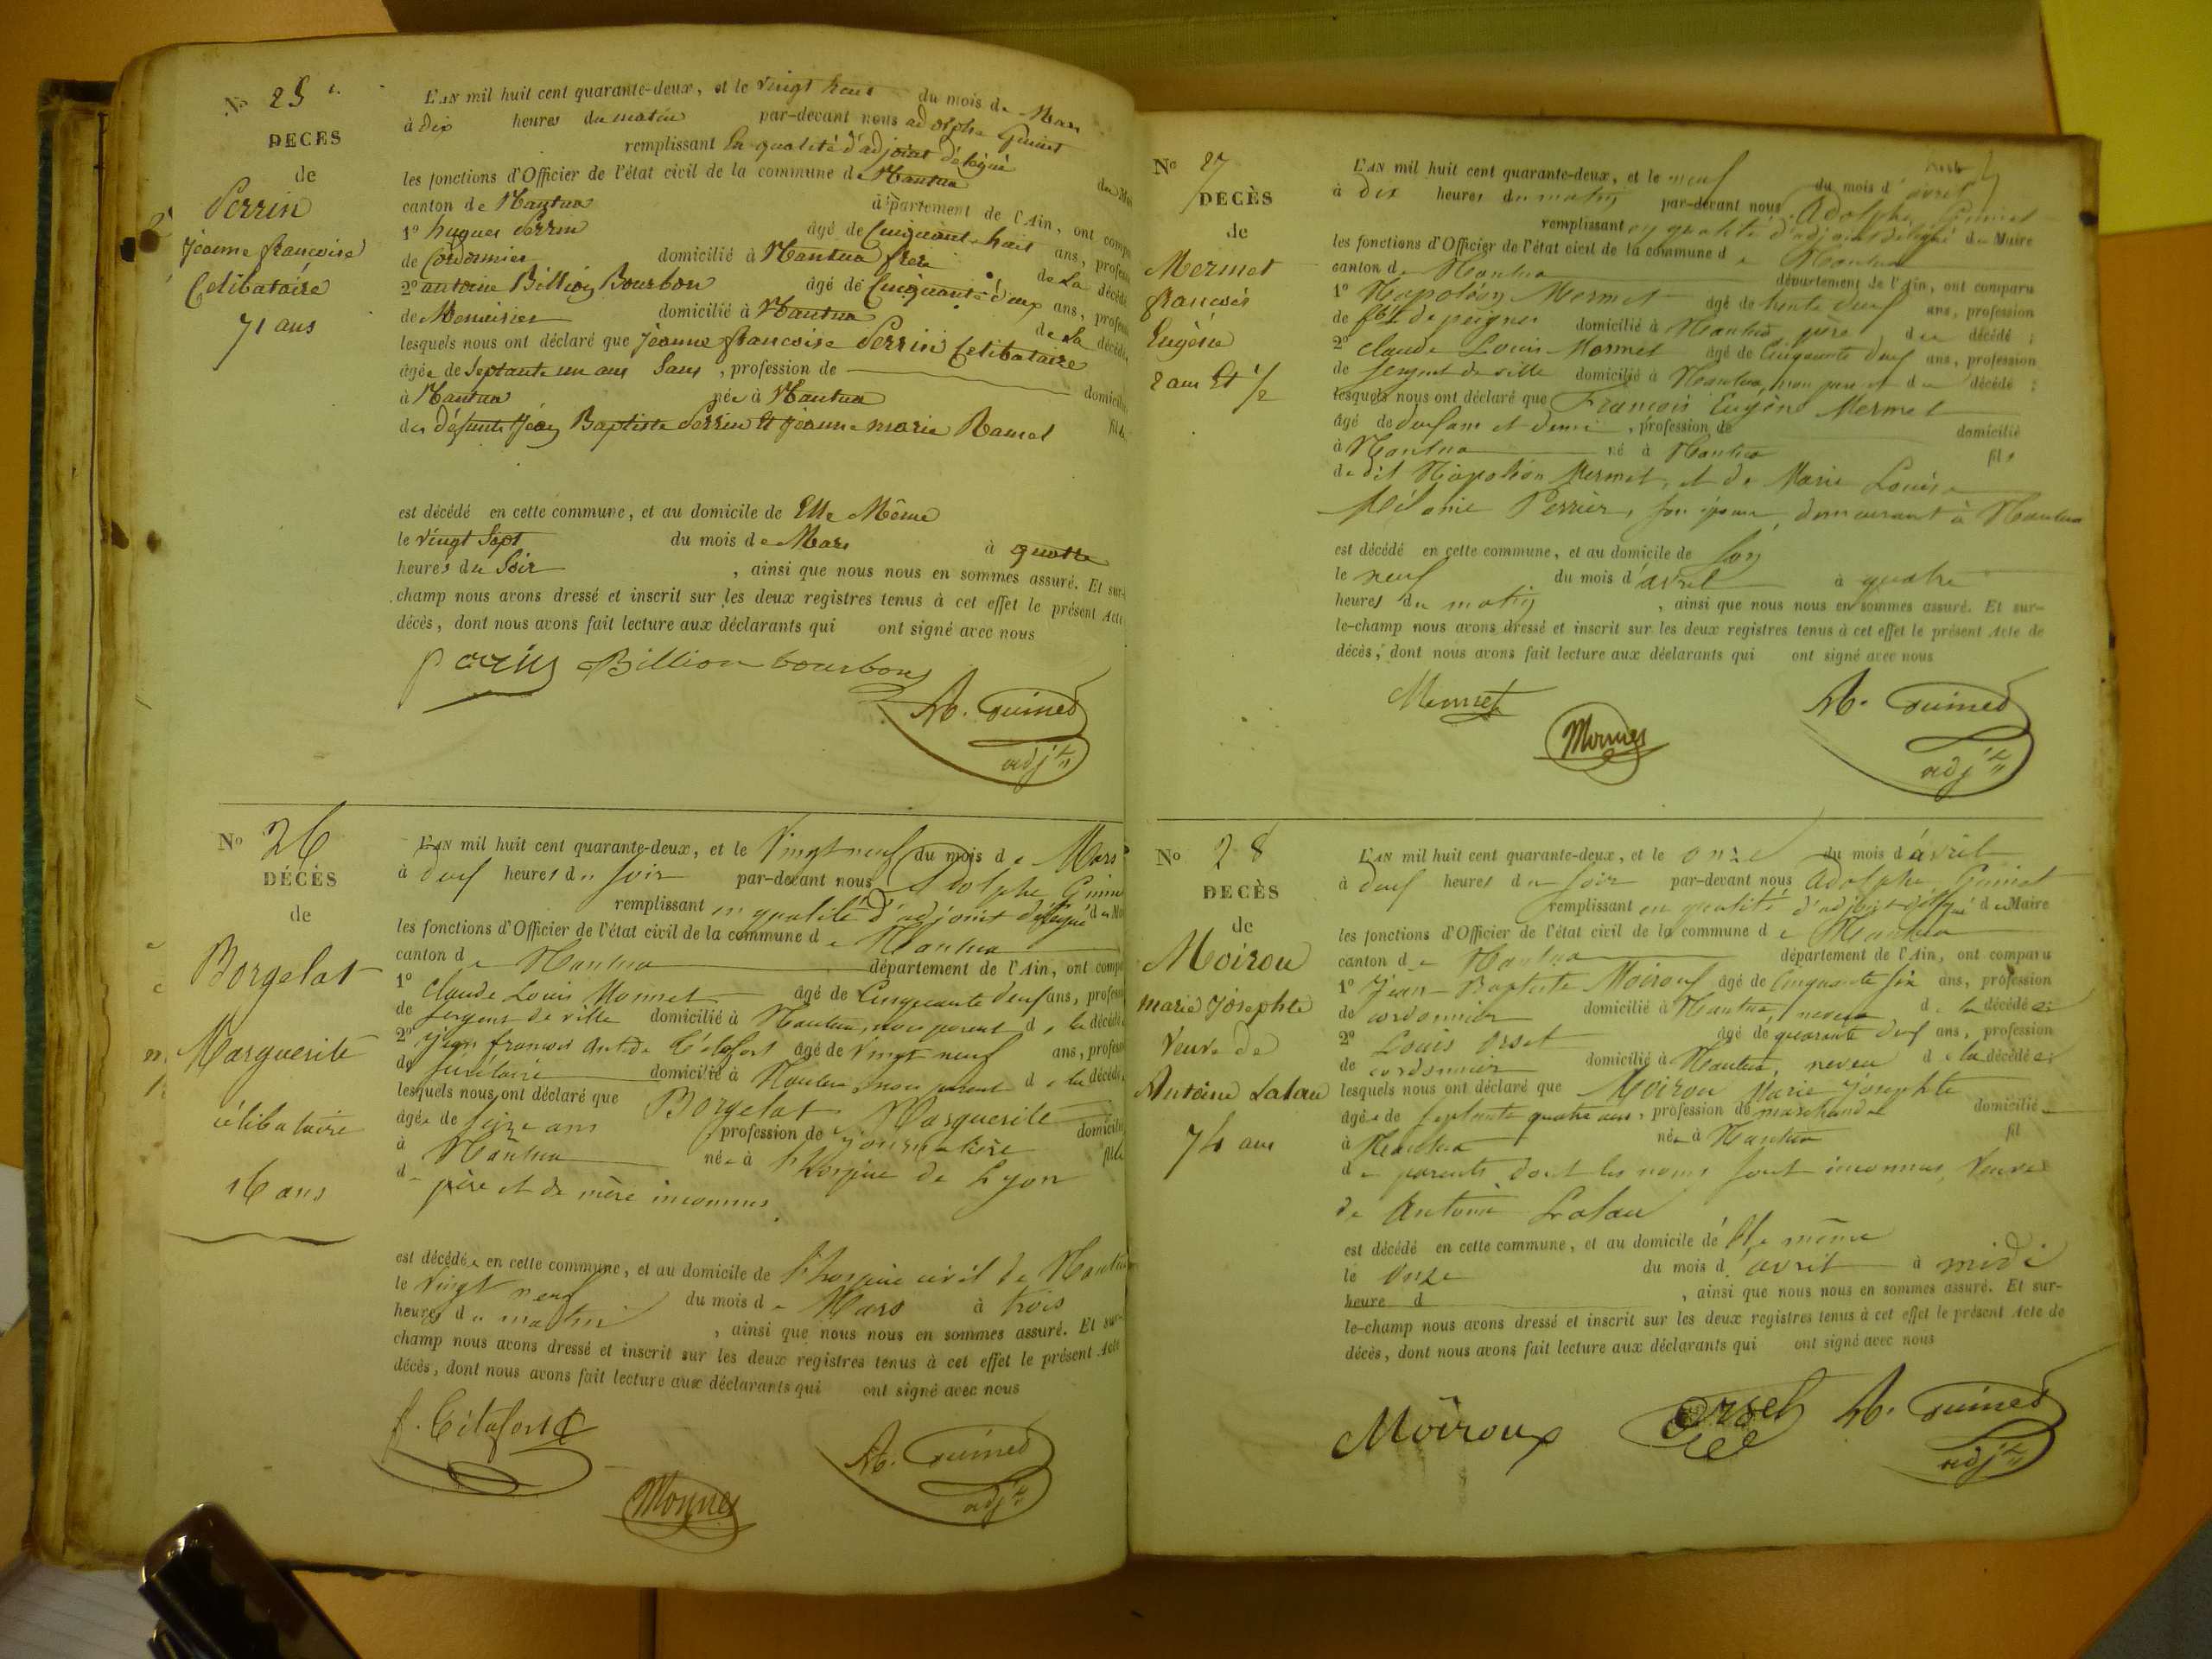 No 25
DECES
de
Perrin
Jeanne françoise
Celibataire
71 ans
L'AN mil huit cent quarante-deux, et le vingt huit du mois de Mars
à dix heures du matin par-devant nous adolphe Guinet
remplissant la qualité d'adjoint délégué du
les fonctions d'Officier de l'état civil de la commune de Nantua
canton de Nantua département de l'Ain, ont comp
1o hugues Perrin âgé de Cinquante huit ans, profess
de Cordonnier domicilié à Nantua frere de La décédé
2o antoine Billion Bourbon âgé de Cinquante deux ans, profess
de Menuisier domicilié à Nantua de La décédé
lesquels nous ont déclaré que Jeanne françoise Perrin Celibataire
âgée de Septante un ans Sans , profession de domicili
à Nantua née à Nantua fille
des défunts Jean Baptiste Perrin Et Jeanne marie Ramel
est décédé en cette commune, et au domicile de Elle Même
le vingt Sept du mois de Mars à quatre
heures du Soir , ainsi que nous nous en sommes assuré. Et sur-
champ nous avons dressé et inscrit sur les deux registres tenus à cet effet le présent Acte
décès, dont nous avons fait lecture aux déclarants qui ont signé avec nous
perrin Billion bourbon
A. Guinet
adjt
No 26
DÉCÈS
de
Borgelat
Marguerite
célibataire
16 ans
L'AN mil huit cent quarante-deux, et le Vingt neuf du mois de Mars
à deux heures du soir par-devant nous Adolphe Guinet
remplissant en qualité d'adjoint délégué du
les fonctions d'Officier de l'état civil de la commune de Nantua
canton de Nantua département de l'Ain, ont comp
1o Claude Louis Monnet âgé de Cinquante deux ans, profess
de sergent de ville domicilié à Nantua, non parent de la décédé
2o Jean francois âgé de Vingt neuf ans, profess
de domicilié à Nantua, non parent de la décédé
lesquels nous ont déclaré que Borgelat Marguerite
âgée de seize ans profession de journalière domicili
à Nantua née à l'hospice de Lyon fille
de père et de mère inconnus
est décédée en cette commune, et au domicile de l'hospice civil de Nantua
le vingt neuf du mois de Mars à trois
heures du matin , ainsi que nous nous en sommes assuré. Et sur-
champ nous avons dressé et inscrit sur les deux registres tenus à cet effet le présent Acte
décès, dont nous avons fait lecture aux déclarants qui ont signé avec nous
A. Guinet
adjt
Monnet
No 27
DECÈS
de
Mermet
françois
Eugène
2 ans Et 1/2
L'AN mil huit cent quarante-deux, et le neuf du mois d'avril
à dix heures du matin par-devant nous Adolphe Guinet
remplissant en qualité d'adjoint délégué du Maire
les fonctions d'Officier de l'état civil de la commune de Nantua
canton de Nantua département de l'Ain, ont comparu
1o Napoléon Mermet âgé de trente deux ans, profession
de fbt de peignes domicilié à Nantua, père du décédé ;
2o Claude Louis Monnet âgé de Cinquante deux ans, profession
de sergent de ville domicilié à Nantua, non parent du décédé ;
lesquels nous ont déclaré que François Eugène Mermet
âgé de deux ans et demi , profession de domicilié
à Nantua né à Nantua fils
de dit Napoléon Mermet, et de Marie Louise
Mélanie Perrier, son épouse, demeurant à Nantua
est décédé en cette commune, et au domicile de son
le neuf du mois d'avril à quatre
heures du matin , ainsi que nous nous en sommes assuré. Et sur-
le-champ nous avons dressé et inscrit sur les deux registres tenus à cet effet le présent Acte de
décès, dont nous avons fait lecture aux déclarants qui ont signé avec nous
Mermet
Monnet
A. Guinet
adjt
No 28
DECÈS
de
Moirou
marie Josephte
Veuve de
Antoine Lalau
74 ans
L'AN mil huit cent quarante-deux, et le onze du mois d'avril
à deux heures du soir par-devant nous Adolphe Guinet
remplissant en qualité d'adjoint délégué du Maire
les fonctions d'Officier de l'état civil de la commune de Nantua
canton de Nantua département de l'Ain, ont comparu
1o Jean-Baptiste Moiroux âgé de Cinquante six ans, profession
de cordonnier domicilié à Nantua, neveu de la décédée ;
2o Louis Orset âgé de quarante deux ans, profession
de cordonnier domicilié à Nantua, neveu de la décédée ;
lesquels nous ont déclaré que Moirou Marie Josephte
âgée de septante quatre ans, profession de marchande domicilié
à Nantua née à Nantua fil
de parents dont les noms sont inconnus, Veuve
de Antoine Lalau
est décédé en cette commune, et au domicile de Elle même
le onze du mois d'avril à midi
heure d , ainsi que nous nous en sommes assuré. Et sur-
le-champ nous avons dressé et inscrit sur les deux registres tenus à cet effet le présent Acte de
décès, dont nous avons fait lecture aux déclarants qui ont signé avec nous
Moiroux Orset A. Guinet
adjt